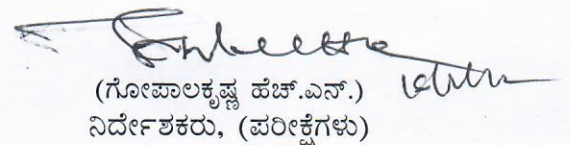 (ಗೋಪಾಲಕೃಷ್ಣ ಹೆಚ್.ಎನ್.)
ನಿರ್ದೇಶಕರು, (ಪರೀಕ್ಷೆಗಳು)